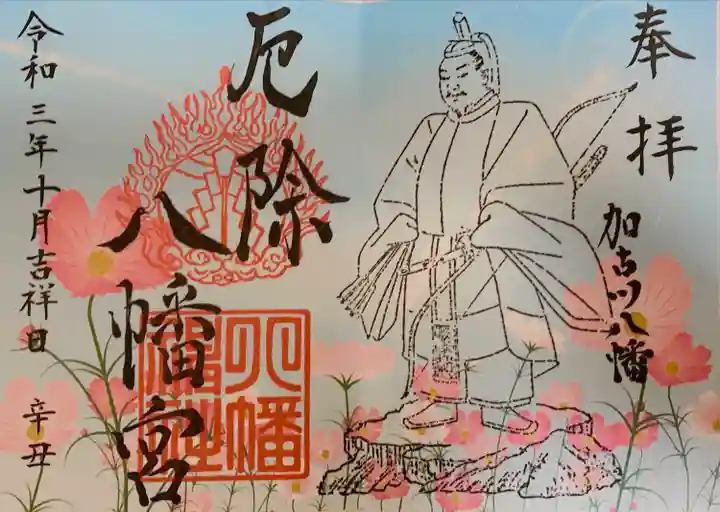 奉拝
加古川八幡
厄除
八幡宮
八幡
令和三年十月吉祥日
辛丑